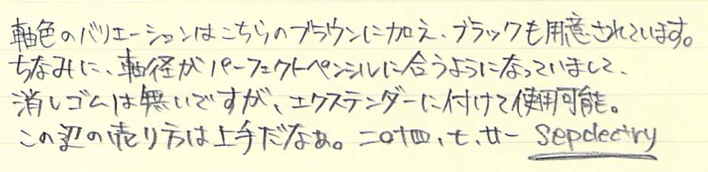 軸色のバリエーションはこちらのブラウンに加え、ブラックも用意されています。
ちなみに、軸径がパーフェクトペンシルに合うようになっていまして、
消しゴムは無いですが、エクステンダーに付けて使用可能。
この辺の売り方は上手だなぁ。二〇十四、七、廿一 Sepdectry